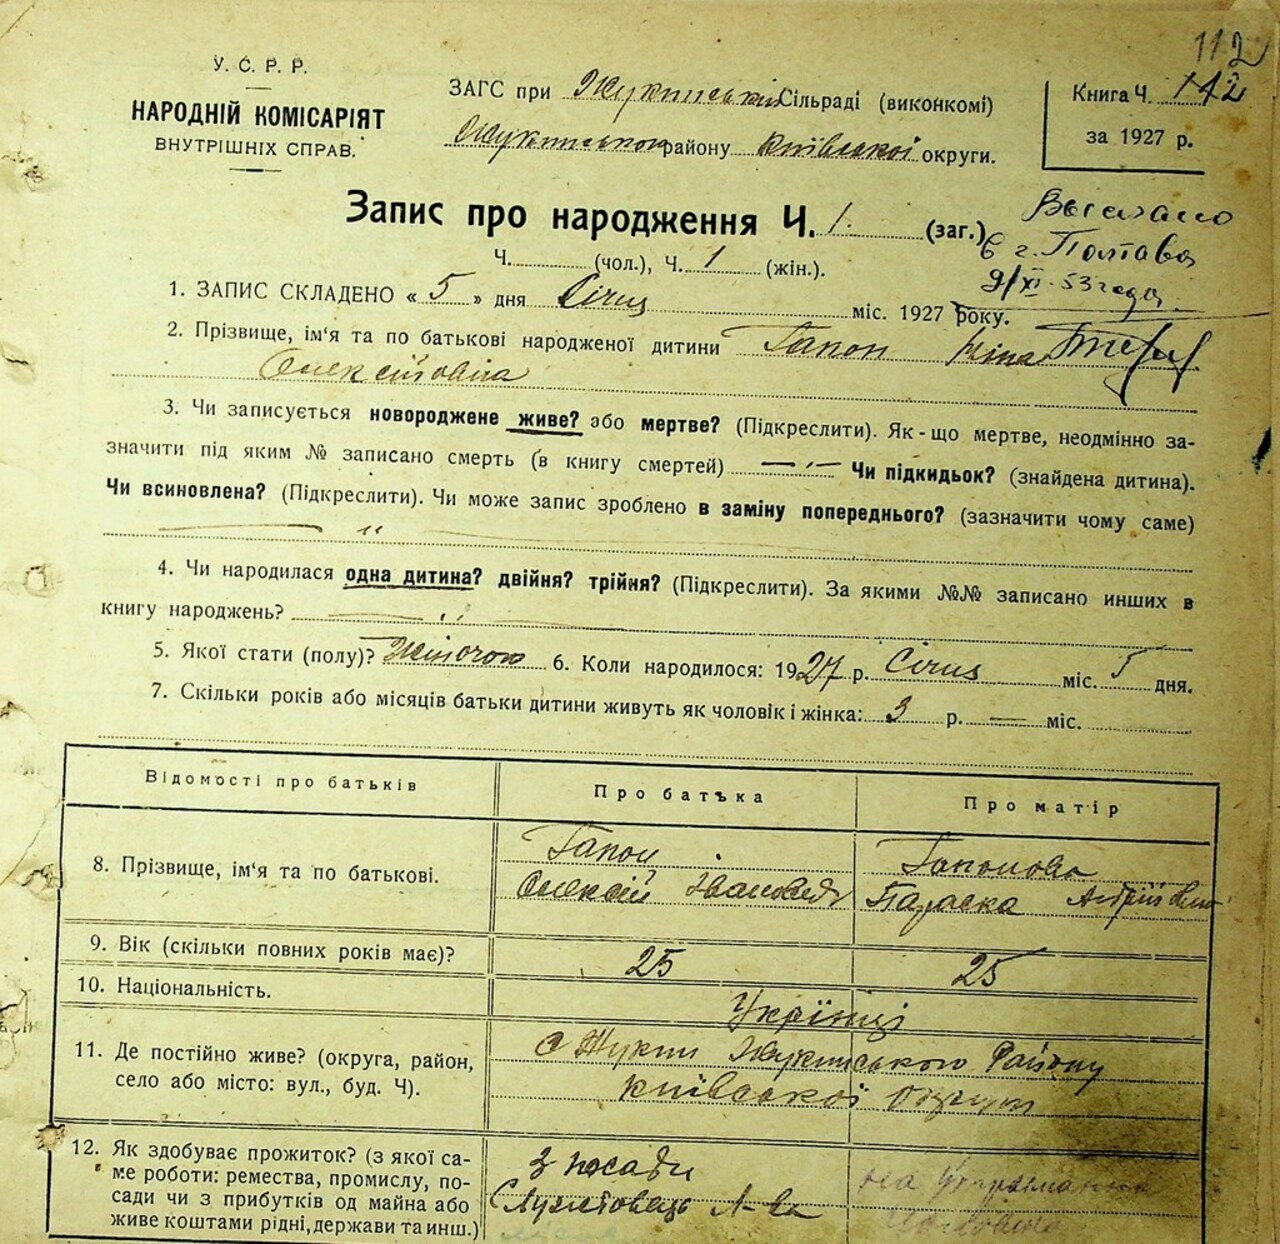 112
У. С. Р. Р.
НАРОДНІЙ КОМІСАРІЯТ
ВНУТРІШНІХ СПРАВ.
ЗАГС при Жукинській Сільраді (виконкомі)
Жукинського району Київської округи.
Книга Ч. 142
за 1927 р.
Запис про народження Ч. 1. (заг.)
Ч. (чол.), Ч. 1 (жін.).
Выслано
в г. Полтава
9/XI-53 года
1. ЗАПИС СКЛАДЕНО « 5 » дня Січня міс. 1927 року.
2. Прізвище, ім'я та по батькові народженої дитини Гапон Ніна
Олексіївна
3. Чи записується новороджене живе? або мертве? (Підкреслити). Як-що мертве, неодмінно за-
значити під яким № записано смерть (в книгу смертей) — „ — Чи підкидьок? (знайдена дитина).
Чи всиновлена? (Підкреслити). Чи може запис зроблено в заміну попереднього? (зазначити чому саме)
— „ —
4. Чи народилася одна дитина? двійня? трійня? (Підкреслити). За якими №№ записано инших в
книгу народжень? — „ —
5. Якої стати (полу)? Жіночої 6. Коли народилося: 1927 р. Січня міс. 5 дня.
7. Скільки років або місяців батьки дитини живуть як чоловік і жінка: 3 р. — міс.
Відомості про батьків Про батька Про матір
8. Прізвище, ім'я та по батькові.
Гапон
Олексій Іванович
Гапонова
Параска Андріївна
9. Вік (скільки повних років має)? 25 25
10. Національність. Українці
11. Де постійно живе? (округа, район,
село або місто: вул., буд. Ч).
с Жукин Жукинського Району
Київської округи
12. Як здобуває прожиток? (з якої са-
ме роботи: ремества, промислу, по-
сади чи з прибутків од майна або
живе коштами рідні, держави та инш.)
з посади
на утриманні
чоловіка